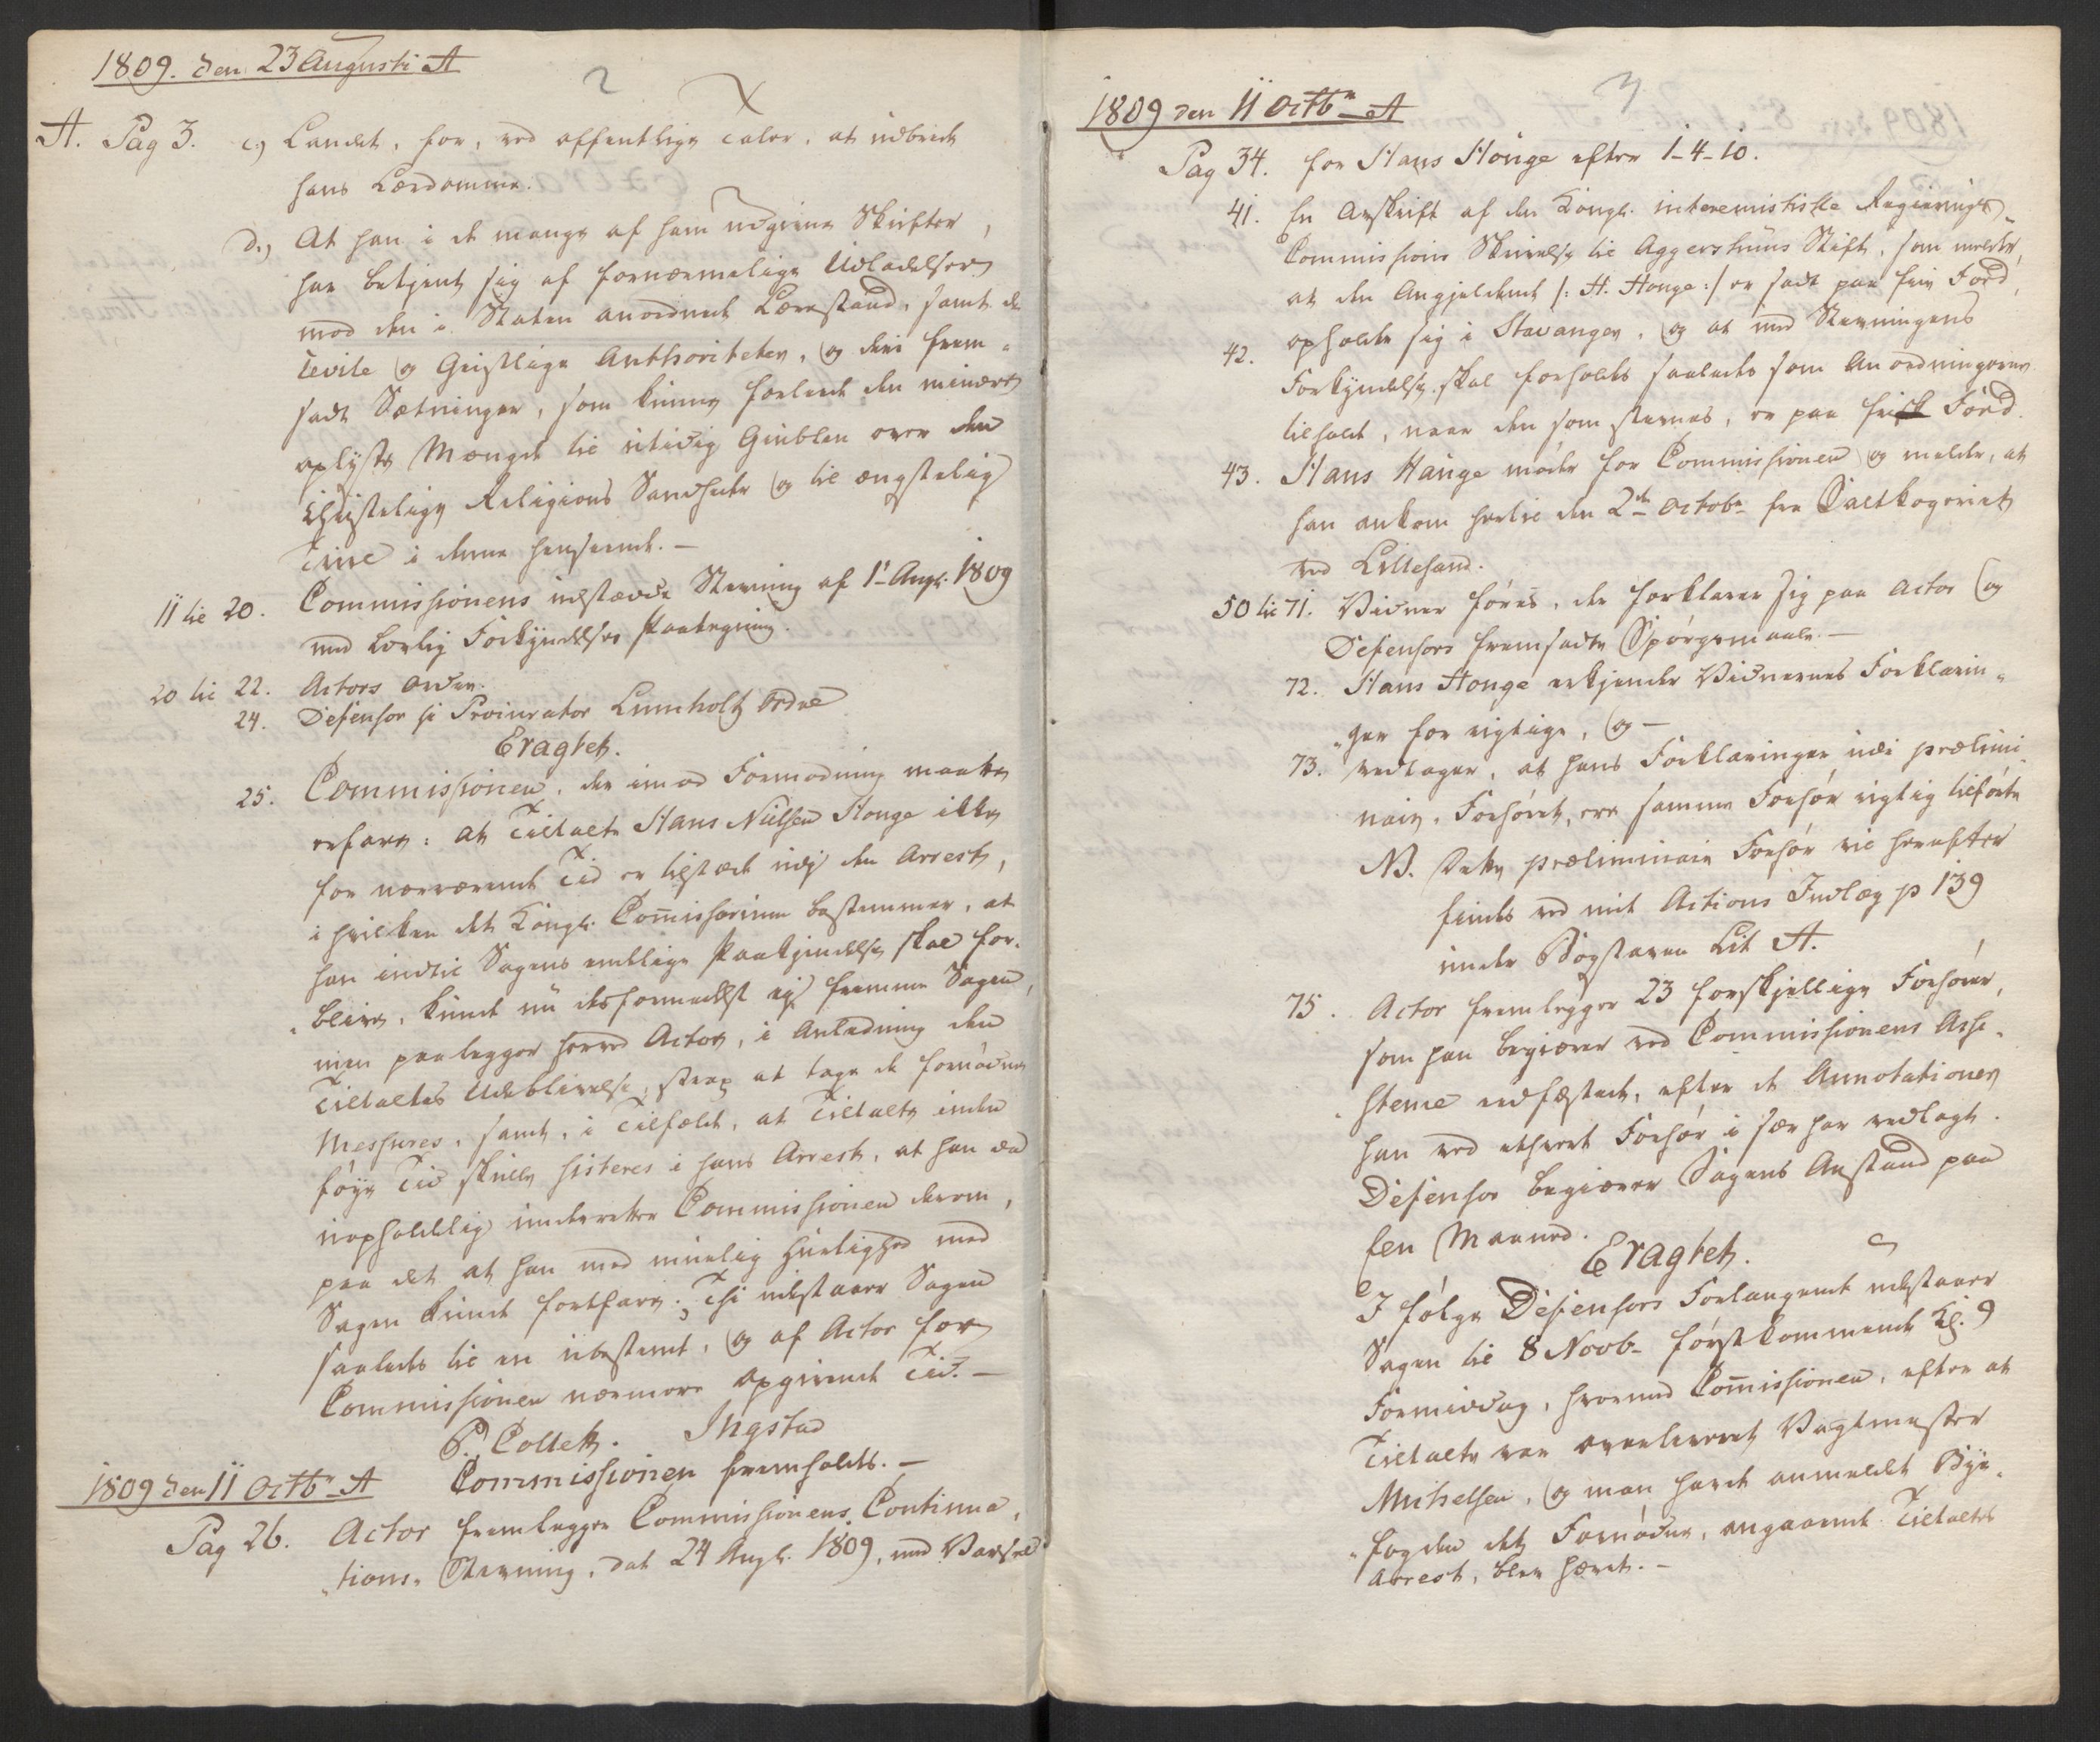 1809. den 23 Augusti A
2
A. Pag 3. c,) Landet, for, ved offentlige Taler, at udbrede
hans Lærdomme.
d.) At han i de mange af ham udgivne Skrifter,
har betjent sig af fornærmelige Udladelser
mod den i Staten anordnede Lærestand, samt de
Cevile og Geistlige Authoriteter, og deri frem-
sadt Sætninger, som kunne forlede den mindre
oplyste Mængde til utidig Grublen over den
Christelige Religions Sandheder og til ængstelig
Tvivl i denne henseende. -
11 til 20. Commissionens udstædde Stevning af 1ste Aug. 1809
med lovlig Forkyndelses Paategning.
20 til 22. Actors Orden.
24. Defensor hr Procurator Lumholtz Ordre
Eragtet.
25. Commissionen, der imod Formodning maatte
erfare: at Tiltalte Hans Nielsen Houge ikke
for nærværende Tid er tilstæde udj den Arrest,
i hvilken det Kongl. Comissorium bestemmer, at
han indtil Sagens endelige Paakjendelse skal for-
„blive, kunde nu desformedelst ej fremme Sagen,
men paalegger herved Actor, i Anledning den
Tiltaltes Udeblivelse, strax at tage de fornødne
Messures, samt, i Tilfælde, at Tiltalte inden
føye Tid skulle sisteres i hans Arrest, at han da
uopholdelig underretter Commissionen derom,
paa det at han med muelig Hurtighed med
Sagen kunde fortfare; Thi udstaaer Sagen
saaledes til en ubestemt, og af Actor for
Commissionen nærmere opgivende Tid. -
P. Collett. Ingstad
1809 den 11 Octbr A Commissionen fremholdes. -
Pag 26. Actor fremlegger Commissionens Continua-
„tions- Stevning, dat 24 Aug. 1809, med Varsel
3
1809 den 11 Octbr A
Pag 34. for Hans Houge efter 1-4-10.
41. En Afskrift af den Kongl. interemistiske Regierings
Commissions Skrivelse til Aggershuus Stift, som melder,
at den Angjeldende /: H. Houge :/ er sadt paa frie Fod,
42. opholder sig i Stavanger, og at med Stevningens
Forkyndelse skal forholdes saaledes som Anordningerne
tilholde, naar den som stevnes, er paa frie Fod.
43. Hans Hauge møder for Commissionen og melder, at
han ankom hertil den 2den Octobr fra Saltkogeriet
ved Lillesand.
50 til 71. Vidner føres, der forklarer sig paa Actor og
Defensors fremsadte Spørgsmaale. -
72. Hans Houge erkjender Vidnernes Forklarin-
„ger for rigtige, og -
73. vedtager, at hans Forklaringer udi prælimi
nair- Forhøret, ere samme Forhør rigtig tilførte
NB. Dette præliminair Forhør vil herefter
findes ved mit Actions Indlæg p 139
under Bogstaven Lit A.
75. Actor fremlegger 23 forskjellige Forhører,
som han begiærer ved Commissionens Acte,
„sterne vedfæstede, efter de Annotationer
han ved ethvert Forhør i sær har vedlagt.
Defensor begiærer Sagens Anstand paa
een Maaned.
Eragtet.
I følge Defensors Forlangende udstaaer
Sagen til 8 Novb- førstkommende Kl. 9
Formiddag, hvormed Comissionen, efter at
Tiltalte var overleveret Vagtmester
Michelsen, og man havde anmeldt Bye-
„fogden det Fornødne, angaaende Tiltaltes
Arrest, blev hævet. -